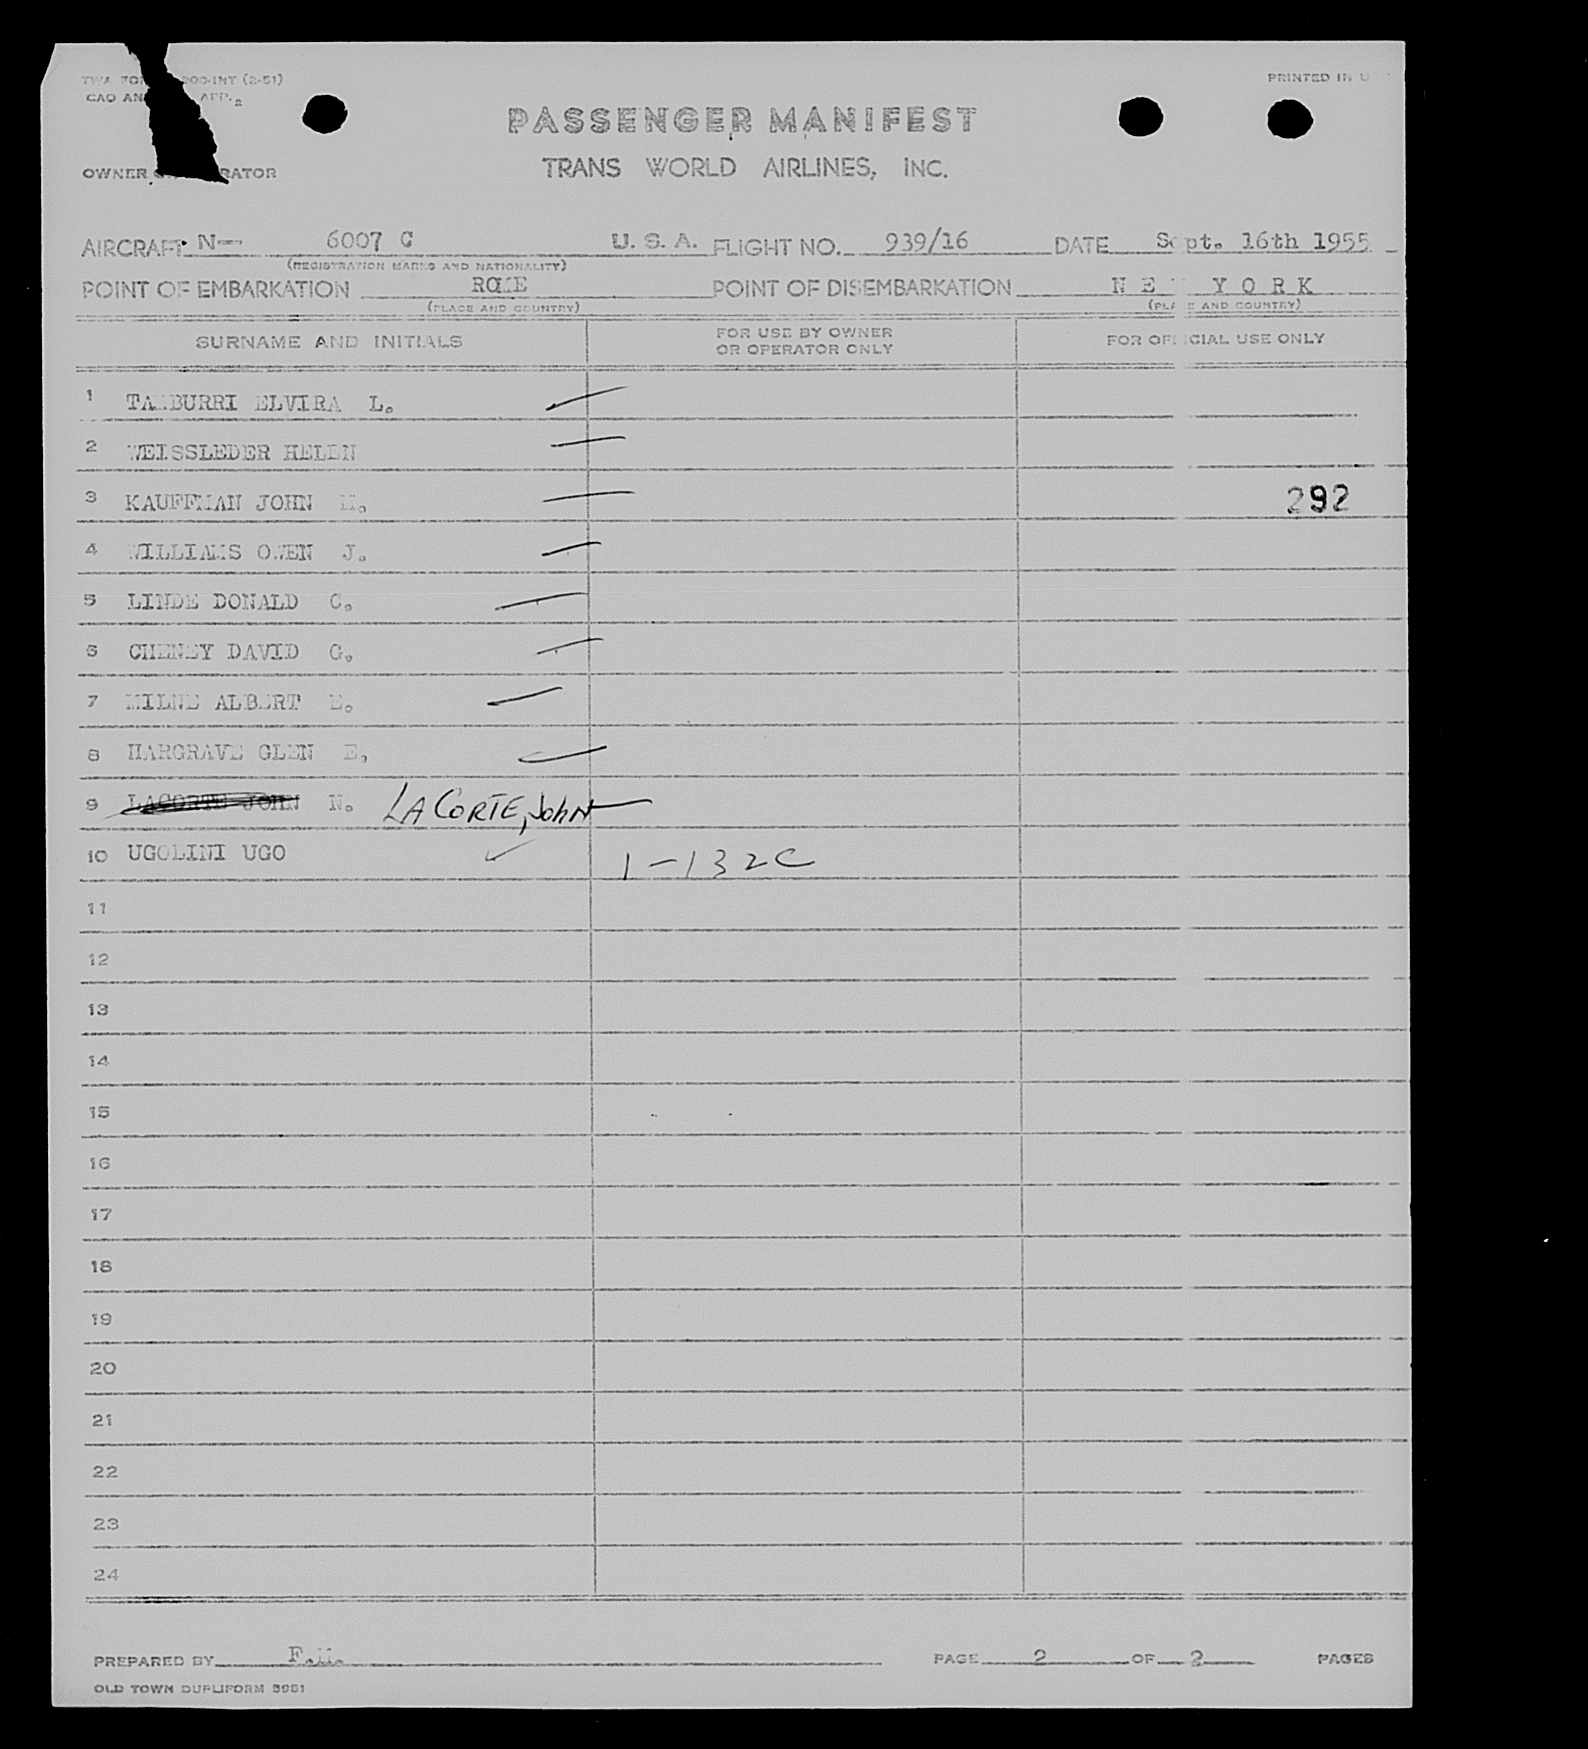 TWA FOR 200-INT (2-51)
PRINTED IN U
CAO AN APP. 2
PASSENGER MANIFEST
OWNER RATOR
TRANS WORLD AIRLINES, INC.
AIRCRAFT N— 6007 C U. S. A. FLIGHT NO. 939/16 DATE Sept. 16th 1955
(REGISTRATION MARKS AND NATIONALITY)
POINT OF EMBARKATION ROME POINT OF DISEMBARKATION NE YORK
(PLACE AND COUNTRY) (PLACE AND COUNTRY)
SURNAME AND INITIALS FOR USE BY OWNER OR OPERATOR ONLY FOR OFFICIAL USE ONLY
1 TAMBURRI ELVIRA L.
2 WEISSLEDER HELEN
3 KAUFFMAN JOHN H. 292
4 WILLIAMS OWEN J.
5 LINDE DONALD C.
6 CHENEY DAVID G.
7 MILNE ALBERT E.
8 HARGRAVE GLEN E.
9 LACORTE JOHN N. LA CORTE, JOHN
10 UGOLINI UGO 1-132C
11
12
13
14
15
16
17
18
19
20
21
22
23
24
PREPARED BY PAGE 2 OF 2 PAGES
OLD TOWN DUPLIFORM 3951